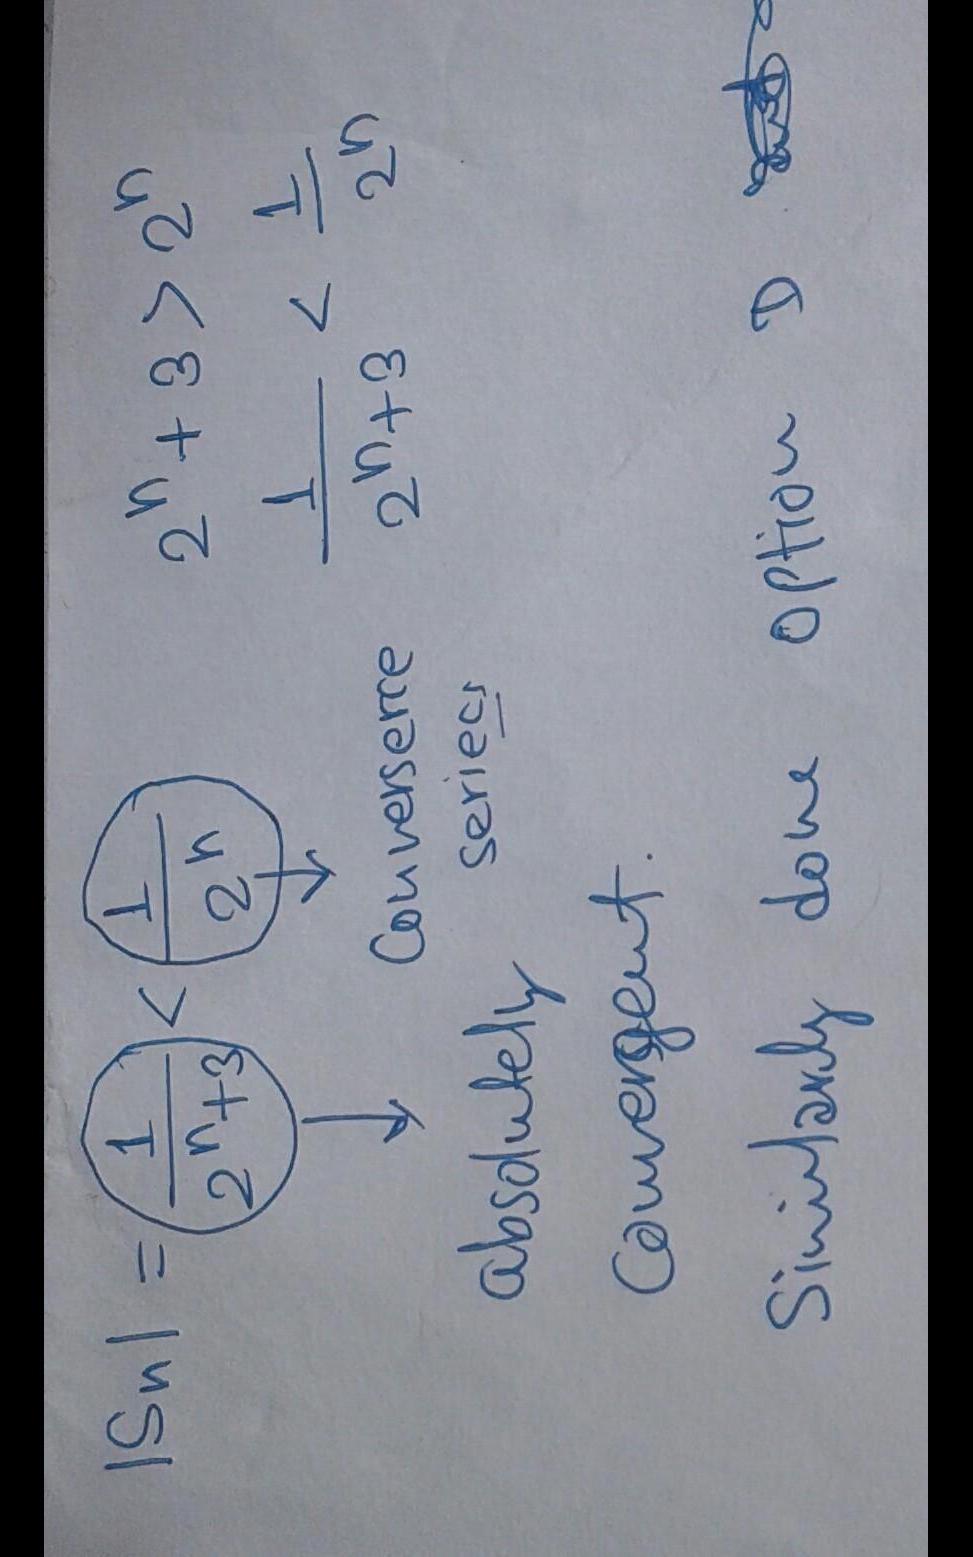 |Sn| = 1/(2^n+3) < 1/2^n
2^n + 3 > 2^n
1/(2^n+3) < 1/2^n
Converserre
series
absolutely
Convergent.
Similarly done option D